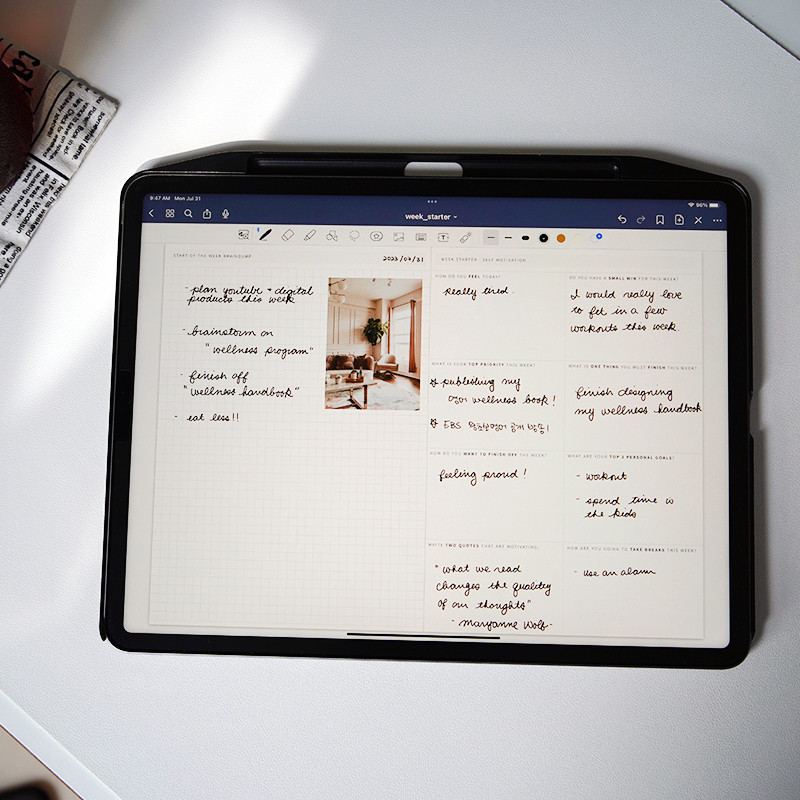 9:47 AM Mon Jul 31
96%
week_starter
START OF THE WEEK BRAINDUMP
2023/07/31
- plan youtube + digital
products this week
- brainstorm on
"wellness program"
- finish off
"wellness handbook"
- eat less!!
WEEK STARTER - SELF MOTIVATION
HOW DO YOU FEEL TODAY?
really tired.
DO YOU HAVE A SMALL WIN FOR THIS WEEK?
I would really love
to fit in a few
workouts this week.
WHAT IS YOUR TOP PRIORITY THIS WEEK?
publishing my
영어 wellness book!
EBS 왕초보영어 공개방송!
WHAT IS ONE THING YOU MUST FINISH THIS WEEK?
finish designing
my wellness handbook
HOW DO YOU WANT TO FINISH OFF THE WEEK?
feeling proud!
WHAT ARE YOUR TOP 2 PERSONAL GOALS?
- workout
- spend time w
the kids
WRITE TWO QUOTES THAT ARE MOTIVATING:
"what we read
changes the quality
of our thoughts"
- Maryanne Wolf-
HOW ARE YOU GOING TO TAKE BREAKS THIS WEEK?
- use an alarm
somewhat lame